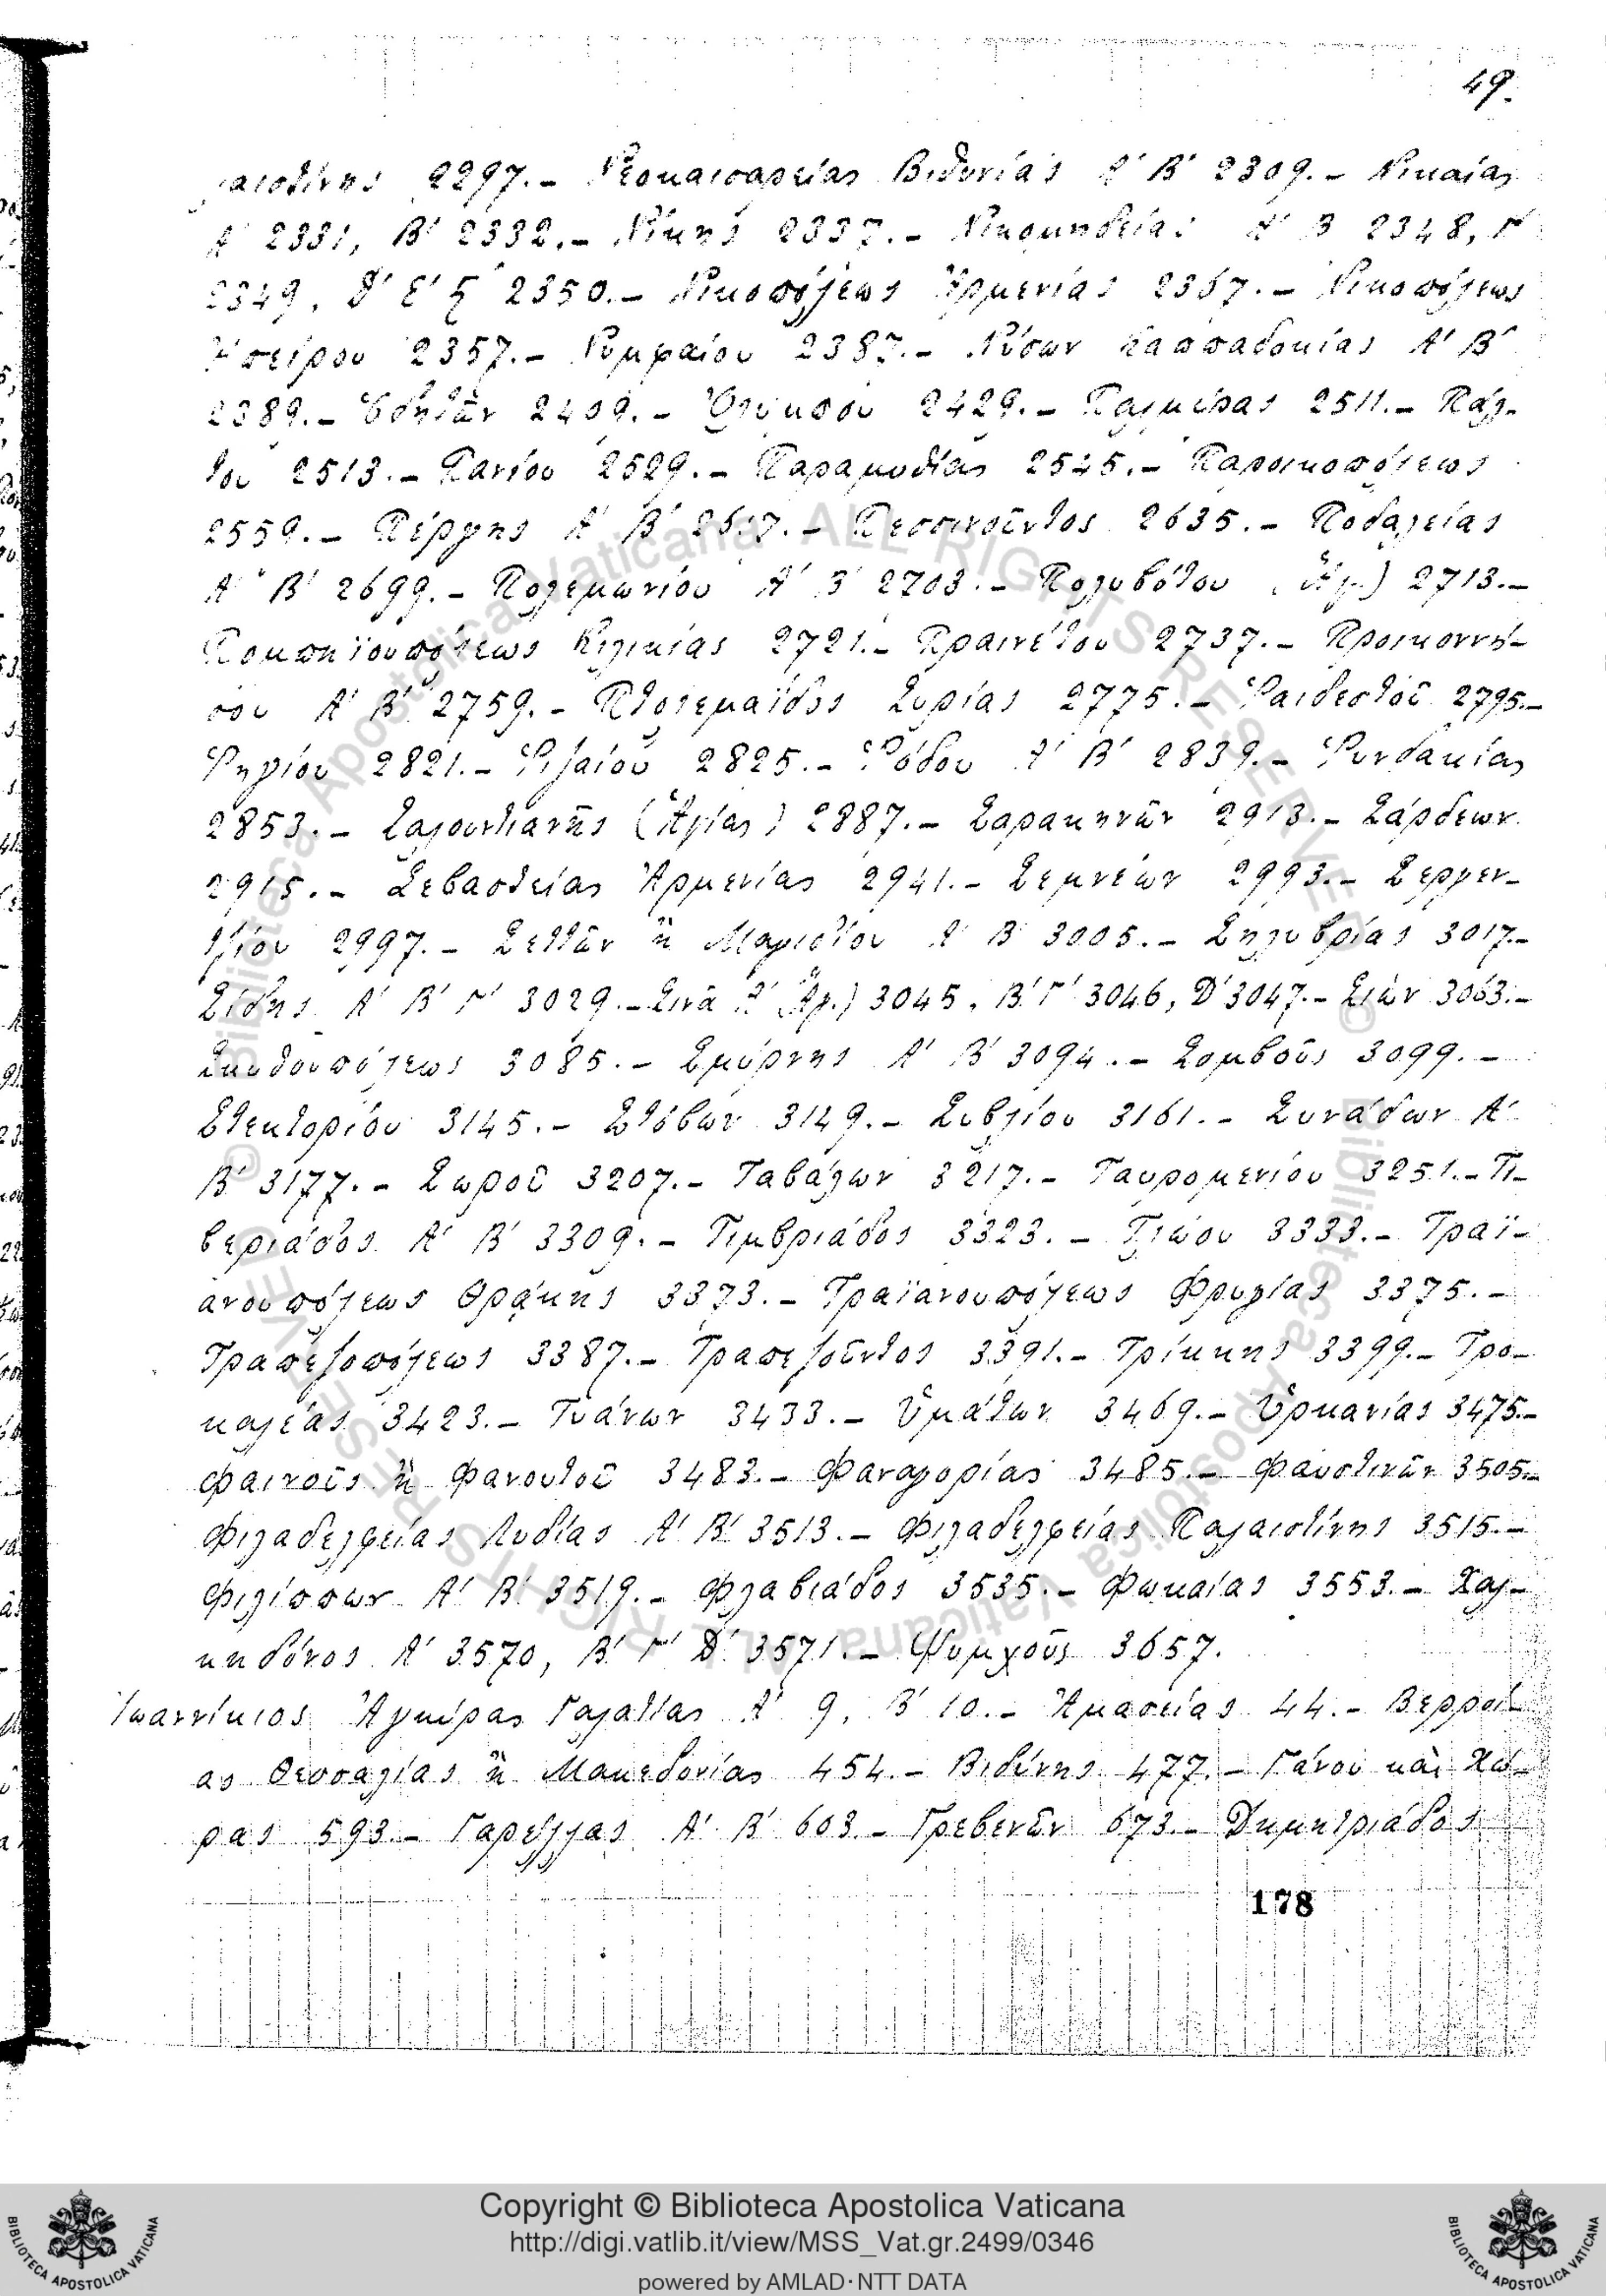 49.
λαιστίνης 2297.– Νεοκαισαρείας Βιθυνίας Α' Β' 2309.– Νικαίας
Α' 2331, Β' 2332.– Νίκης 2337.– Νικομηδείας Α' Β 2348, Γ
2349, Δ' Ε' ς 2350.– Νικοπόλεως Ἀρμενίας 2367.– Νικοπόλεως
Ἠπείρου 2357.– Νυμφαίου 2387.– Νύσων Καππαδοκίας Α' Β'
2389.– 2409.– Ὀλύμπου 2429.– Παλμύρας 2511.– Πάλ-
του 2513.– Πανίου 2529.– Παραμυθίας 2545.– Παροικοπόλεως
2559.– Πέργης Α' Β' 2617.– Πεσσινοῦντος 2635.– Ποδαλείας
Α' Β' 2699.– Πολεμωνίου Α' Β' 2703.– Πολυβότου (Ἁγ.) 2713.–
Πομπηϊουπόλεως Κιλικίας 2721.– Πραινέτου 2737.– Προικοννή-
σου Α' Β' 2759.– Πτολεμαΐδος Συρίας 2775.– Ῥαιδεστοῦ 2795.–
Ῥηγίου 2821.– Ῥιζαίου 2825.– Ῥόδου Α' Β' 2839.– Ῥυνδακίας
2853.– Σαλουντιανῆς (Ἁγίας) 2887.– Σαρακηνῶν 2913.– Σάρδεων
2915.– Σεβαστείας Ἀρμενίας 2941.– Σεμνέων 2993.– Σεργεν-
τζίου 2997.– Σεττῶν ἢ Μαγιστίου Α' Β' 3005.– Σηλυβρίας 3017.–
Σίδης Α' Β' Γ' 3029.– Σινᾶ Α' (Ἁγ.) 3045, Β' Γ' 3046, Δ' 3047.– Σιὼν 3063.–
Σκυθουπόλεως 3085.– Σμύρνης Α' Β' 3094.– Σομβοῦς 3099.–
Στεκτορίου 3145.– Στόβων 3149.– Συβλίου 3161.– Συνάδων Α'
Β' 3177.– Σωροῦ 3207.– Ταβάλων 3217.– Ταυρομενίου 3251.– Τι-
βεριάδος Α' Β' 3309.– Τιμβριάδος 3323.– Τλώου 3333.– Τραϊ-
ανουπόλεως Θράκης 3373.– Τραϊανουπόλεως Φρυγίας 3375.–
Τραπεζοπόλεως 3387.– Τραπεζοῦντος 3391.– Τρίκκης 3399.– Τρο-
καλέας 3423.– Τυάνων 3433.– Ὑμάτων 3469.– Ὑρκανίας 3475.–
Φαινοῦς ἢ Φανουτοῦ 3483.– Φαναγορίας 3485.– Φαυστινῶν 3505.–
Φιλαδελφείας Λυδίας Α' Β' 3513.– Φιλαδελφείας Παλαιστίνης 3515.–
Φιλίππων Α' Β' 3519.– Φλαβιάδος 3535.– Φωκαίας 3553.– Χαλ-
κηδόνος Α' 3570, Β' Γ' Δ' 3571.– Ψυμχοῦς 3657.
Ἰωαννίκιος Ἀγκύρας Γαλατίας Α' 9, Β' 10.– Ἀμασείας 44.– Βερροί-
ας Θεσσαλίας ἢ Μακεδονίας 454.– Βιδύνης 477.– Γάνου καὶ Χώ-
ρας 593.– Γαρέλλας Α' Β' 603.– Γρεβενῶν 673.– Δημητριάδος
178
© Biblioteca Apostolica Vaticana ALL RIGHTS RESERVED
Copyright © Biblioteca Apostolica Vaticana
http://digi.vatlib.it/view/MSS_Vat.gr.2499/0346
powered by AMLAD·NTT DATA
BIBLIOTECA APOSTOLICA VATICANA
BIBLIOTECA APOSTOLICA VATICANA